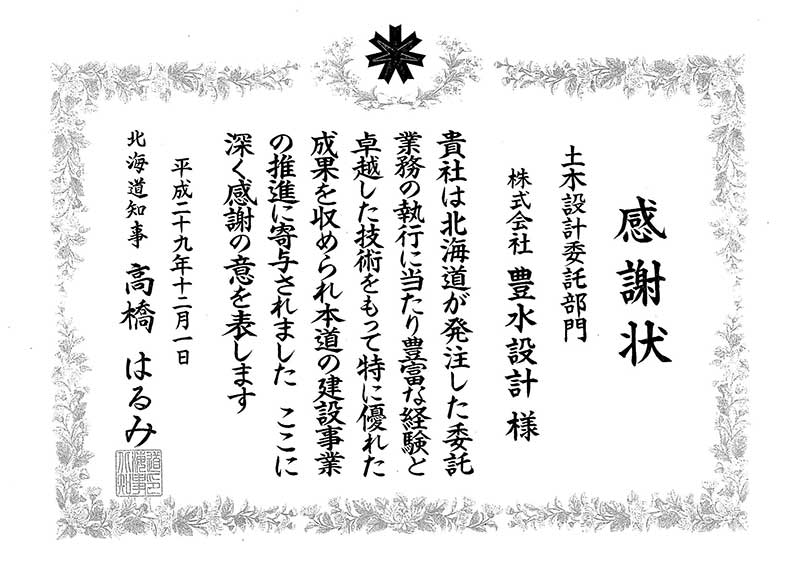 感謝状
土木設計委託部門
株式会社 豊水設計 様
貴社は北海道が発注した委託
業務の執行に当たり豊富な経験と
卓越した技術をもって特に優れた
成果を収められ本道の建設事業
の推進に寄与されました ここに
深く感謝の意を表します
平成二十九年十二月一日
北海道知事 高橋 はるみ